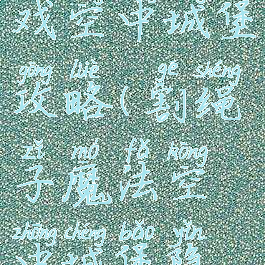 戏空中城堡
gōng lüè gē shéng
攻略(割绳
zǐ mó fǎ kōng
子魔法空
zhōng chéng bǎo yǐn
中城堡隐